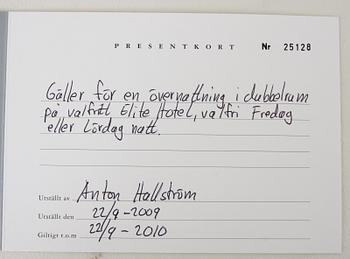 PRESENTKORT Nr 25128
Gäller för en övernattning i dubbelrum
på valfritt Elite Hotel, valfri Fredag
eller Lördag natt.
Utställt av Anton Hallström
Utställt den 22/9-2009
Giltigt t.o.m 22/9-2010